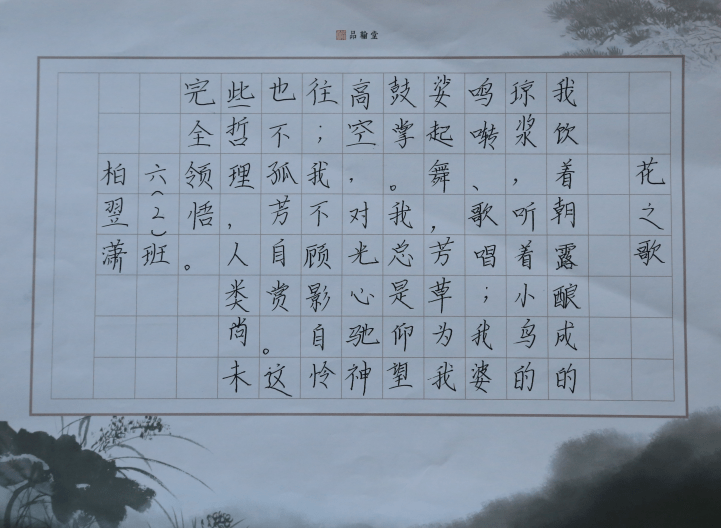 品翰堂
花之歌
我饮着朝露酿成的
琼浆，听着小鸟的
鸣啭、歌唱；我婆
娑起舞，芳草为我
鼓掌。我总是仰望
高空，对光心驰神
往；我不顾影自怜
也不孤芳自赏。这
些哲理，人类尚未
完全领悟。
六（2）班
柏翌潇